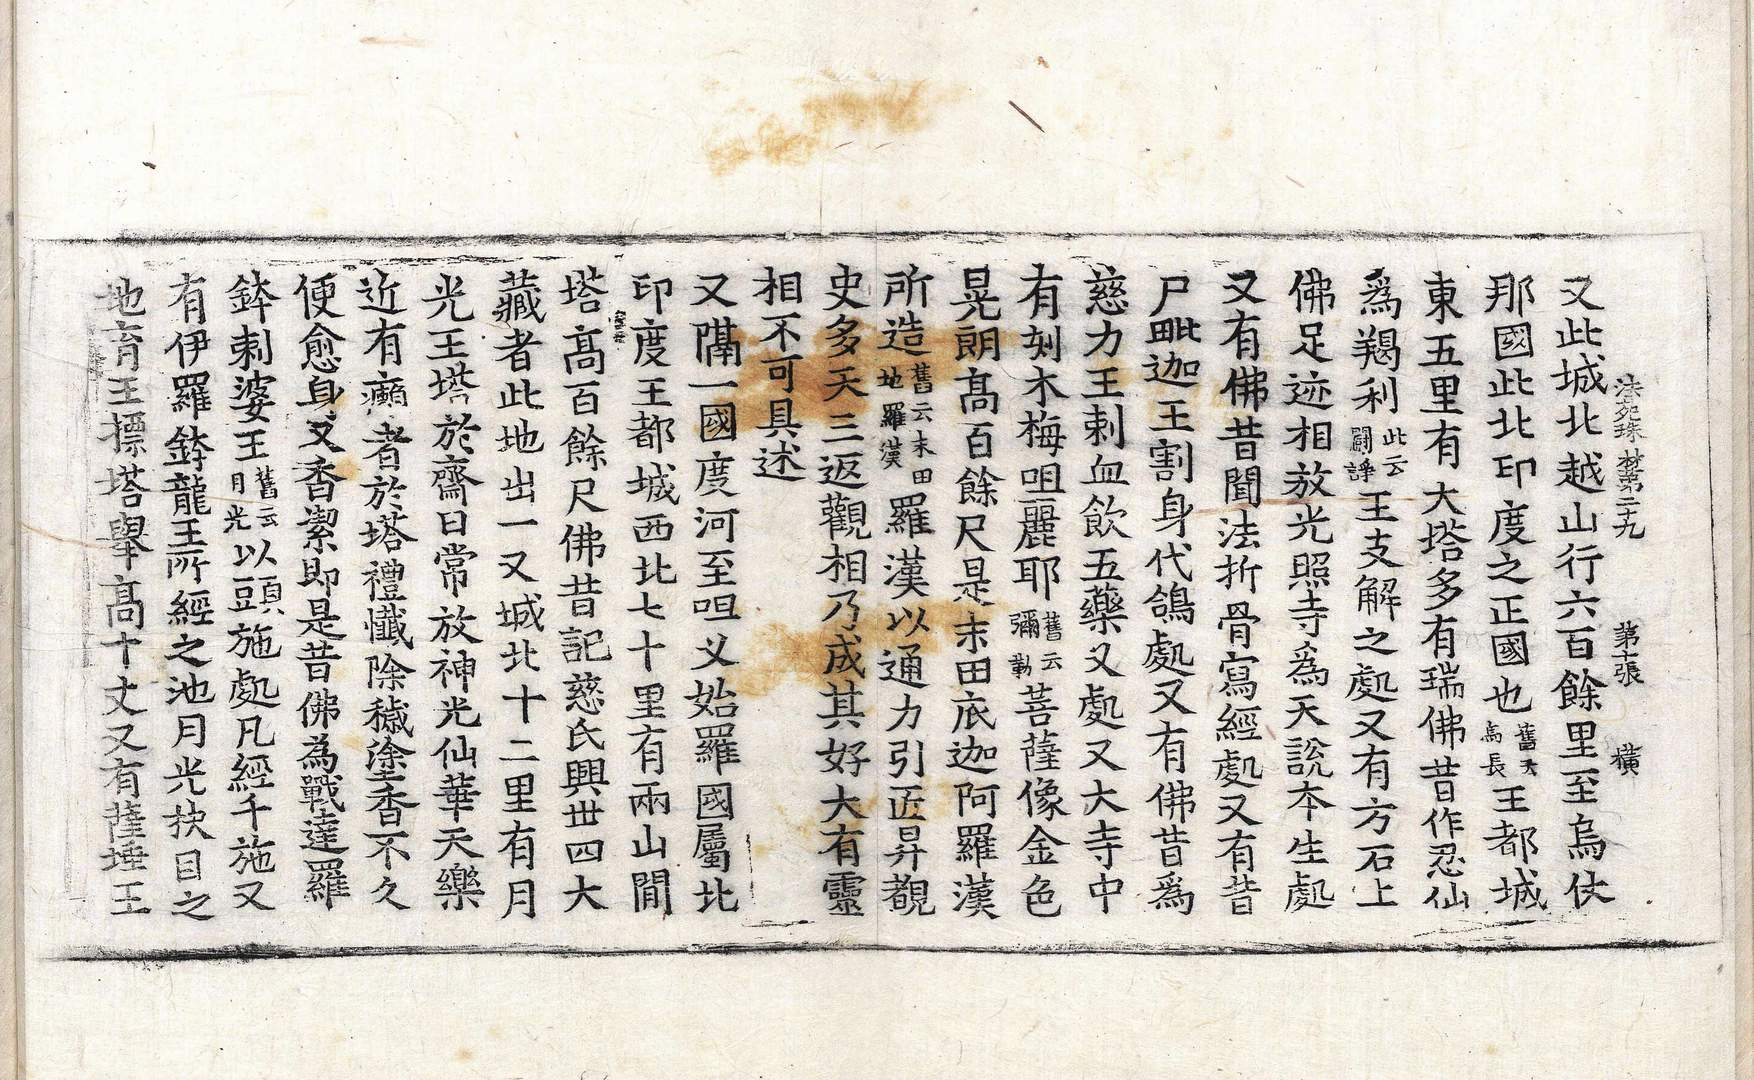 法苑珠林第二十九 第十張 橫
又此城北越山行六百餘里至烏仗
那國此北印度之正國也舊云烏長王都城
東五里有大塔多有瑞佛昔作忍仙
爲羯利此云鬪諍王支解之處又有方石上
佛足迹相放光照寺爲天說本生處
又有佛昔聞法折骨寫經處又有昔
尸毗迦王割身代鴿處又有佛昔爲
慈力王刺血飮五藥叉處又大寺中
有刻木梅呾麗耶舊云彌勒菩薩像金色
晃朗高百餘尺是末田底迦阿羅漢
所造舊云末田地羅漢羅漢以通力引匠昇覩
史多天三返觀相乃成其好大有靈
相不可具述
又隔一國度河至呾叉始羅國屬北
印度王都城西北七十里有兩山間
塔高百餘尺佛昔記慈氏興世四大
藏者此地出一又城北十二里有月
光王塔於齋日常放神光仙華天樂
近有癩者於塔禮懺除穢塗香不久
便愈身又香潔即是昔佛為戰達羅
鉢剌婆王舊云月光以頭施處凡經千施又
有伊羅鉢龍王所經之池月光抉目之
地育王標塔舉高十丈又有薩埵王